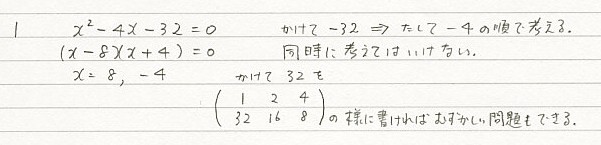 1 x²-4x-32=0 かけて -32 ⇒ たして -4 の順で考える.
(x-8)(x+4)=0 同時に考えてはいけない.
x=8, -4 かけて 32 を
( 1 2 4
32 16 8 )の様に書ければむずかしい問題もできる.